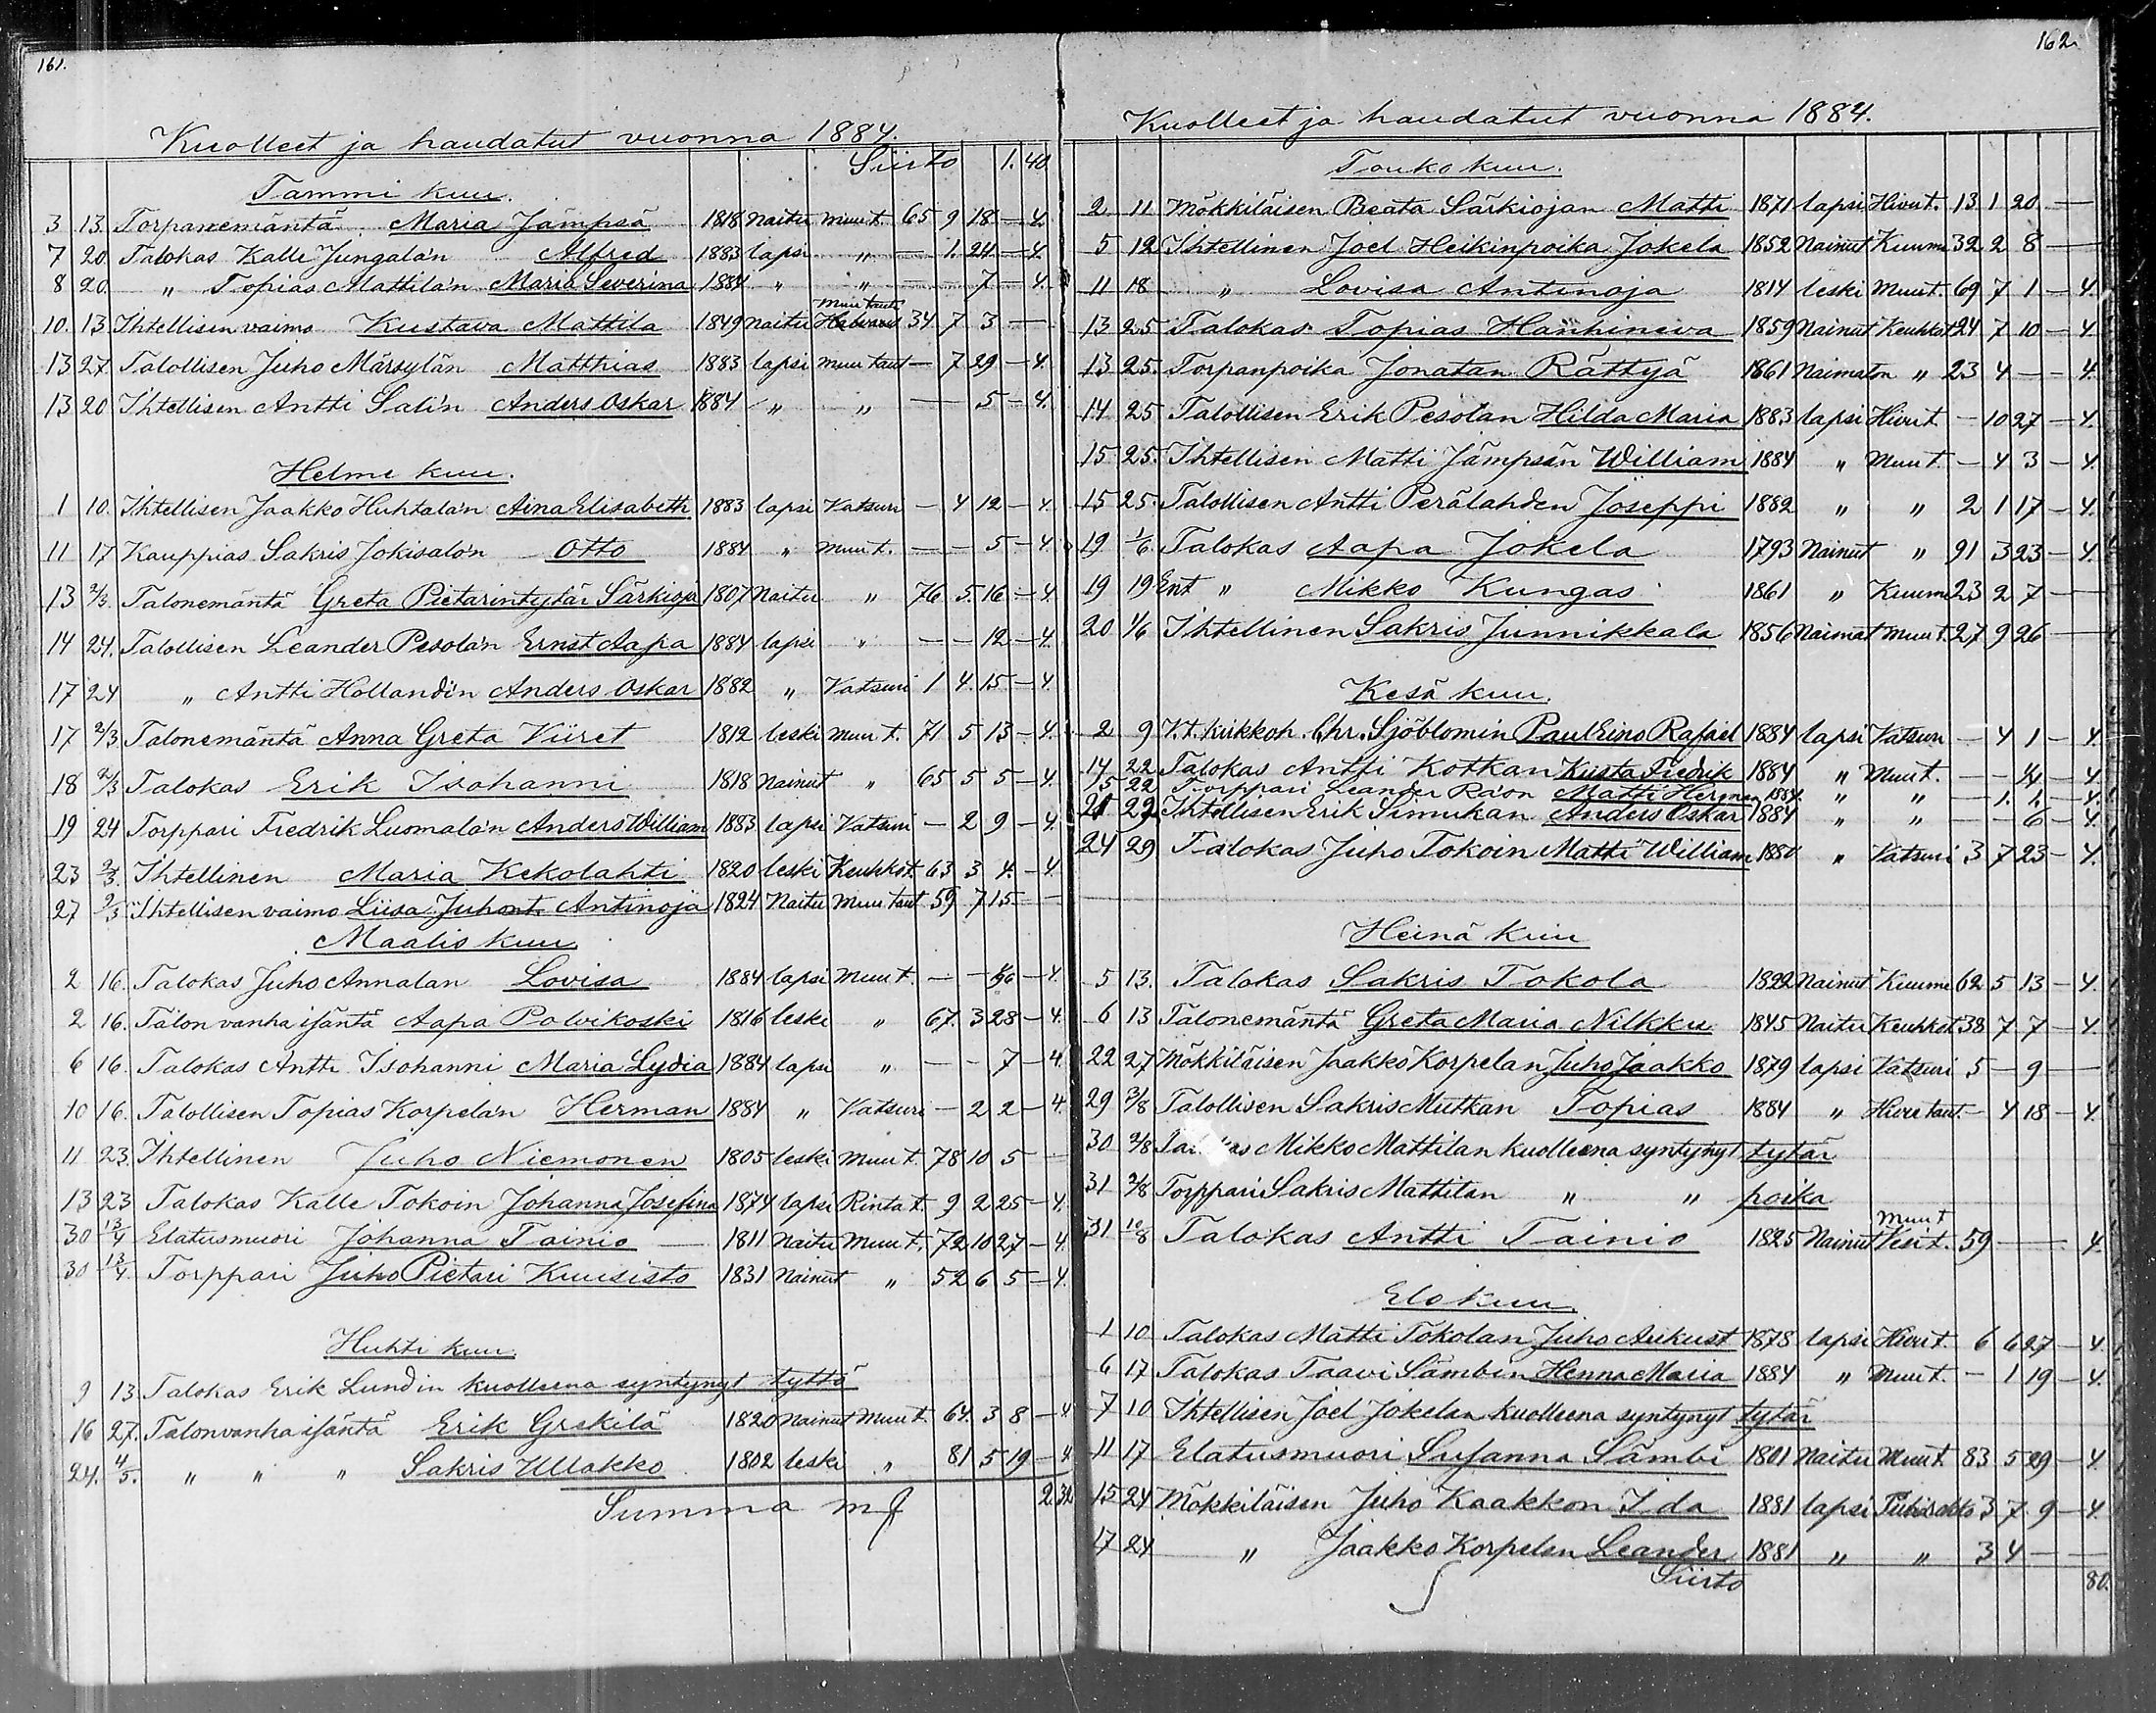 161.
Kuolleet ja haudatut vuonna 1884.
Siirto 1. 40
Tammi kuu.
3 13. Torpanemäntä Maria Jämpsä 1818 Naitu muu t. 65 9 18 — 4.
7 20 Talokas Kalle Jungala'n Alfred 1883 lapsi " — 1. 24 — 4.
8 20. " Topias Mattila'n Maria Severina 1884 " " — 7 — 4.
muu tauti
10. 13 Ihtellisen vaimo Kustava Mattila 1849 Naitu 34 7 3 —
13 27. Talollisen Juho Märsylän Matthias 1883 lapsi muu taut — 7 29 — 4.
13 20 Ihtellisen Antti Sali'n Anders Oskar 1884 " " — 5 — 4.
Helmi kuu.
1 10. Ihtellisen Jaakko Huhtala'n Aina Elisabeth 1883 lapsi Vatsuri — 4 12 — 4.
11 17 Kauppias Sakris Jokisalo'n Otto 1884 " muu t. — — 5 — 4.
13 2/3. Talonemäntä Greta Pietarintytär Särkioja 1807 Naitu " 76 5. 16 — 4.
14 24. Talollisen Leander Pesola'n Ernst Aapa 1884 lapsi " — — 12 — 4.
17 24 " Antti Hollandi'n Anders Oskar 1882 " Vatsuri 1 4. 15 — 4.
17 2/3 Talonemäntä Anna Greta Viiret 1812 leski muu t. 71 5 13 — 4.
18 2/3 Talokas Erik Isohanni 1818 Nainut " 65 5 5 — 4.
19 24 Torppari Fredrik Luomala'n Anders William 1883 lapsi Vatsuri — 2 9 — 4.
23 2/3. Ihtellinen Maria Kekolahti 1820 leski Keuhkot. 63 3 4. — 4.
27 2/3 Ihtellisen vaimo Liisa Juhont. Antinoja 1824 Naitu muu taut 59 7 15 —
Maalis kuu.
2 16. Talokas Juho Annalan Lovisa 1884 lapsi Muu t. — — — 4.
2 16. Talon vanha isäntä Aapa Polvikoski 1816 leski " 67. 3 28 — 4.
6 16. Talokas Antti Isohanni Maria Lydia 1884 lapsi " — — 7 — 4.
10 16. Talollisen Topias Korpela'n Herman 1884 " Vatsuri — 2 2 — 4.
11 23. Ihtellinen Juho Niemonen 1805 leski Muu t. 78 10 5 —
13 23 Talokas Kalle Tokoin Johanna Josefina 1874 lapsi Rinta t. 9 2 25 — 4.
30 13/4 Elatusmuori Johanna Tainio 1811 Naitu Muu t. 72 10 27 — 4.
30 13/4. Torppari Juho Pietari Kuusisto 1831 Nainut " 52 6 5 — 4.
Huhti kuu.
9 13. Talokas Erik Lundin kuolleena syntynyt tyttö
16 27. Talon vanha isäntä Erik Grekilä 1820 Nainut Muu t. 64. 3 8 — 4
24. 4/5. " " " Sakris Ullakko 1802 leski " 81 5 19 — 4
Summa 2.32
162.
Kuolleet ja haudatut vuonna 1884.
Touko kuu.
2 11 Mökkiläisen Beata Särkiojan Matti 1871 lapsi Hivut. 13 1 20 —
5 12 Ihtellinen Joel Heikinpoika Jokela 1852 Nainut Kuume 32 2 8 —
11 18 " Lovisa Antinoja 1814 leski Muut. 69 7 1 — 4.
13 25 Talokas Topias Hanhineva 1859 Nainut Keuhkot 24 7 10 — 4.
13 25. Torpanpoika Jonatan Rättyä 1861 Naimaton " 23 4 — — 4.
14 25 Talollisen Erik Pesolan Hilda Maria 1883 lapsi Hivut — 10 27 — 4.
15 25. Ihtellisen Matti Jämpsän William 1884 " Muu t. — 4 3 — 4.
15 25. Talollisen Antti Perälahden Joseppi 1882 " " 2 1 17 — 4.
19 1/6 Talokas Aapa Jokela 1793 Nainut " 91 3 23 — 4.
19 19 Ent " Mikko Kungas 1861 " Kuume 23 2 7 —
20 1/6 Ihtellinen Sakris Junnikkala 1856 Naimat muu t. 27 9 26 —
Kesä kuu.
2 9 V.t. kirkkoh. Chr. Sjöblomin Paul Eino Rafael 1884 lapsi Vatsuri — 4 1 — 4.
14 22 Talokas Antti Kotkan Kusta Fredrik 1884 " Muu t. — — — 4.
15 22 Torppari Leander Ra'on Matti Herman 1884. " " — 1. 1. — 4.
21 22 Ihtellisen Erik Simukan Anders Oskar 1884 " " — — 6 — 4.
24 29 Talokas Juho Tokoin Matti William 1880 " Vatsuri 3 7 23 — 4.
Heinä kuu
5 13. Talokas Sakris Tokola 1822 Nainut Kuume 62 5 13 — 4.
6 13 Talonemäntä Greta Maria Nilkku 1845 Naitu Keuhkot. 38 7 7 — 4.
22 27 Mökkiläisen Jaakko Korpelan Juho Jaakko 1879 lapsi Vatsuri 5 — 9 —
29 3/8 Talollisen Sakris Mutkan Topias 1884 " Hivu taut. — 4 18 — 4.
30 2/8 Mikko Mattilan kuolleena syntynyt tytär
31 2/8 Torppari Sakris Mattilan " " poika
Muu t
31 10/8 Talokas Antti Tainio 1825 Nainut Vesi t. 59 — — 4.
Elo kuu.
1 10 Talokas Matti Tokolan Juho Aukust 1878 lapsi Hivut. 6 6 27 — 4.
6 17 Talokas Taavi Sämbin Henna Maria 1884 " Muu t. — 1 19 — 4.
7 10 Ihtellisen Joel Jokelan kuolleena syntynyt tytär
11 17 Elatusmuori Susanna Sämbi 1801 Naitu Muut 83 5 29 — 4.
15 24 Mökkiläisen Juho Kaakkon Ida 1881 lapsi 3 7 9 — 4.
17 24 " Jaakko Korpelan Leander 1881 " " 3 4 — —
Siirto 80.